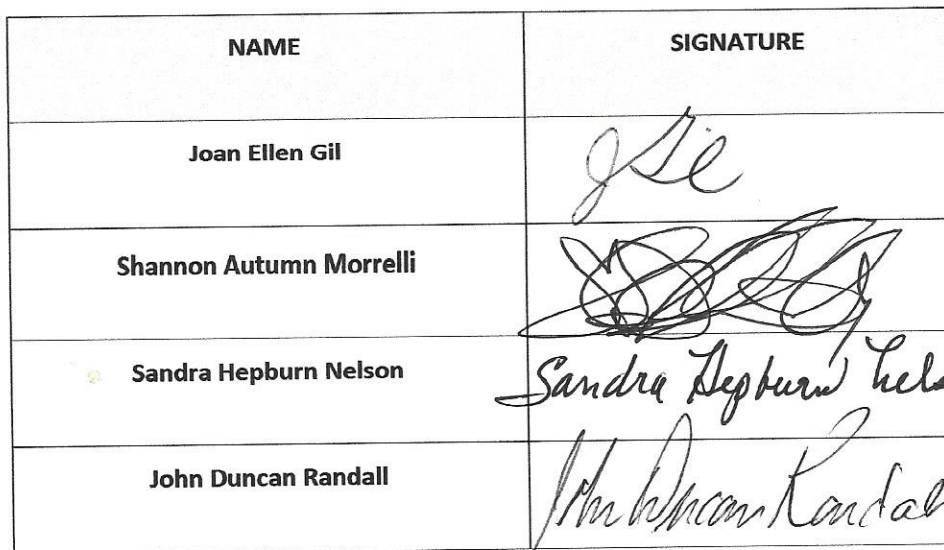 NAME SIGNATURE
Joan Ellen Gil J Gil
Shannon Autumn Morrelli
Sandra Hepburn Nelson Sandra Hepburn Nels
John Duncan Randall John Duncan Randall